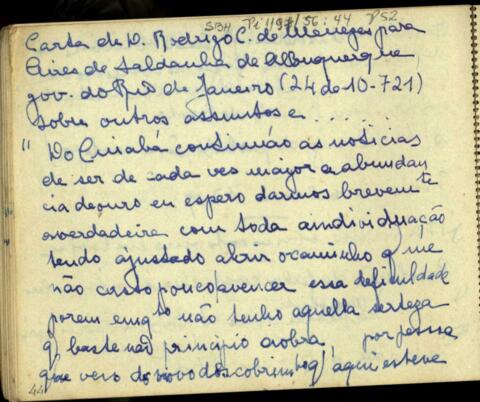 SBH Pi 119 /56: 44 P52
Carta de D. Rodrigo C. de Menezes para
Aires de Saldanha de Albuquerque,
gov. do Rio de Janeiro (24 de 10-721)
sobre outros assuntos e . . . . . .
"Do Cuiabá continuão as noticias
de ser de cada ves mayor a abundan
cia de ouro eu espero darmos brevemte
averdadeira com toda aindividuação
tendo ajustado abrir ocaminho q me
não custo pouco avencer essa deficuldade
porem emqto não tenho aquella serteza
q, baste não principio aobra, por pessoa
que veio do novo descobrimto q' aqui esteve
44